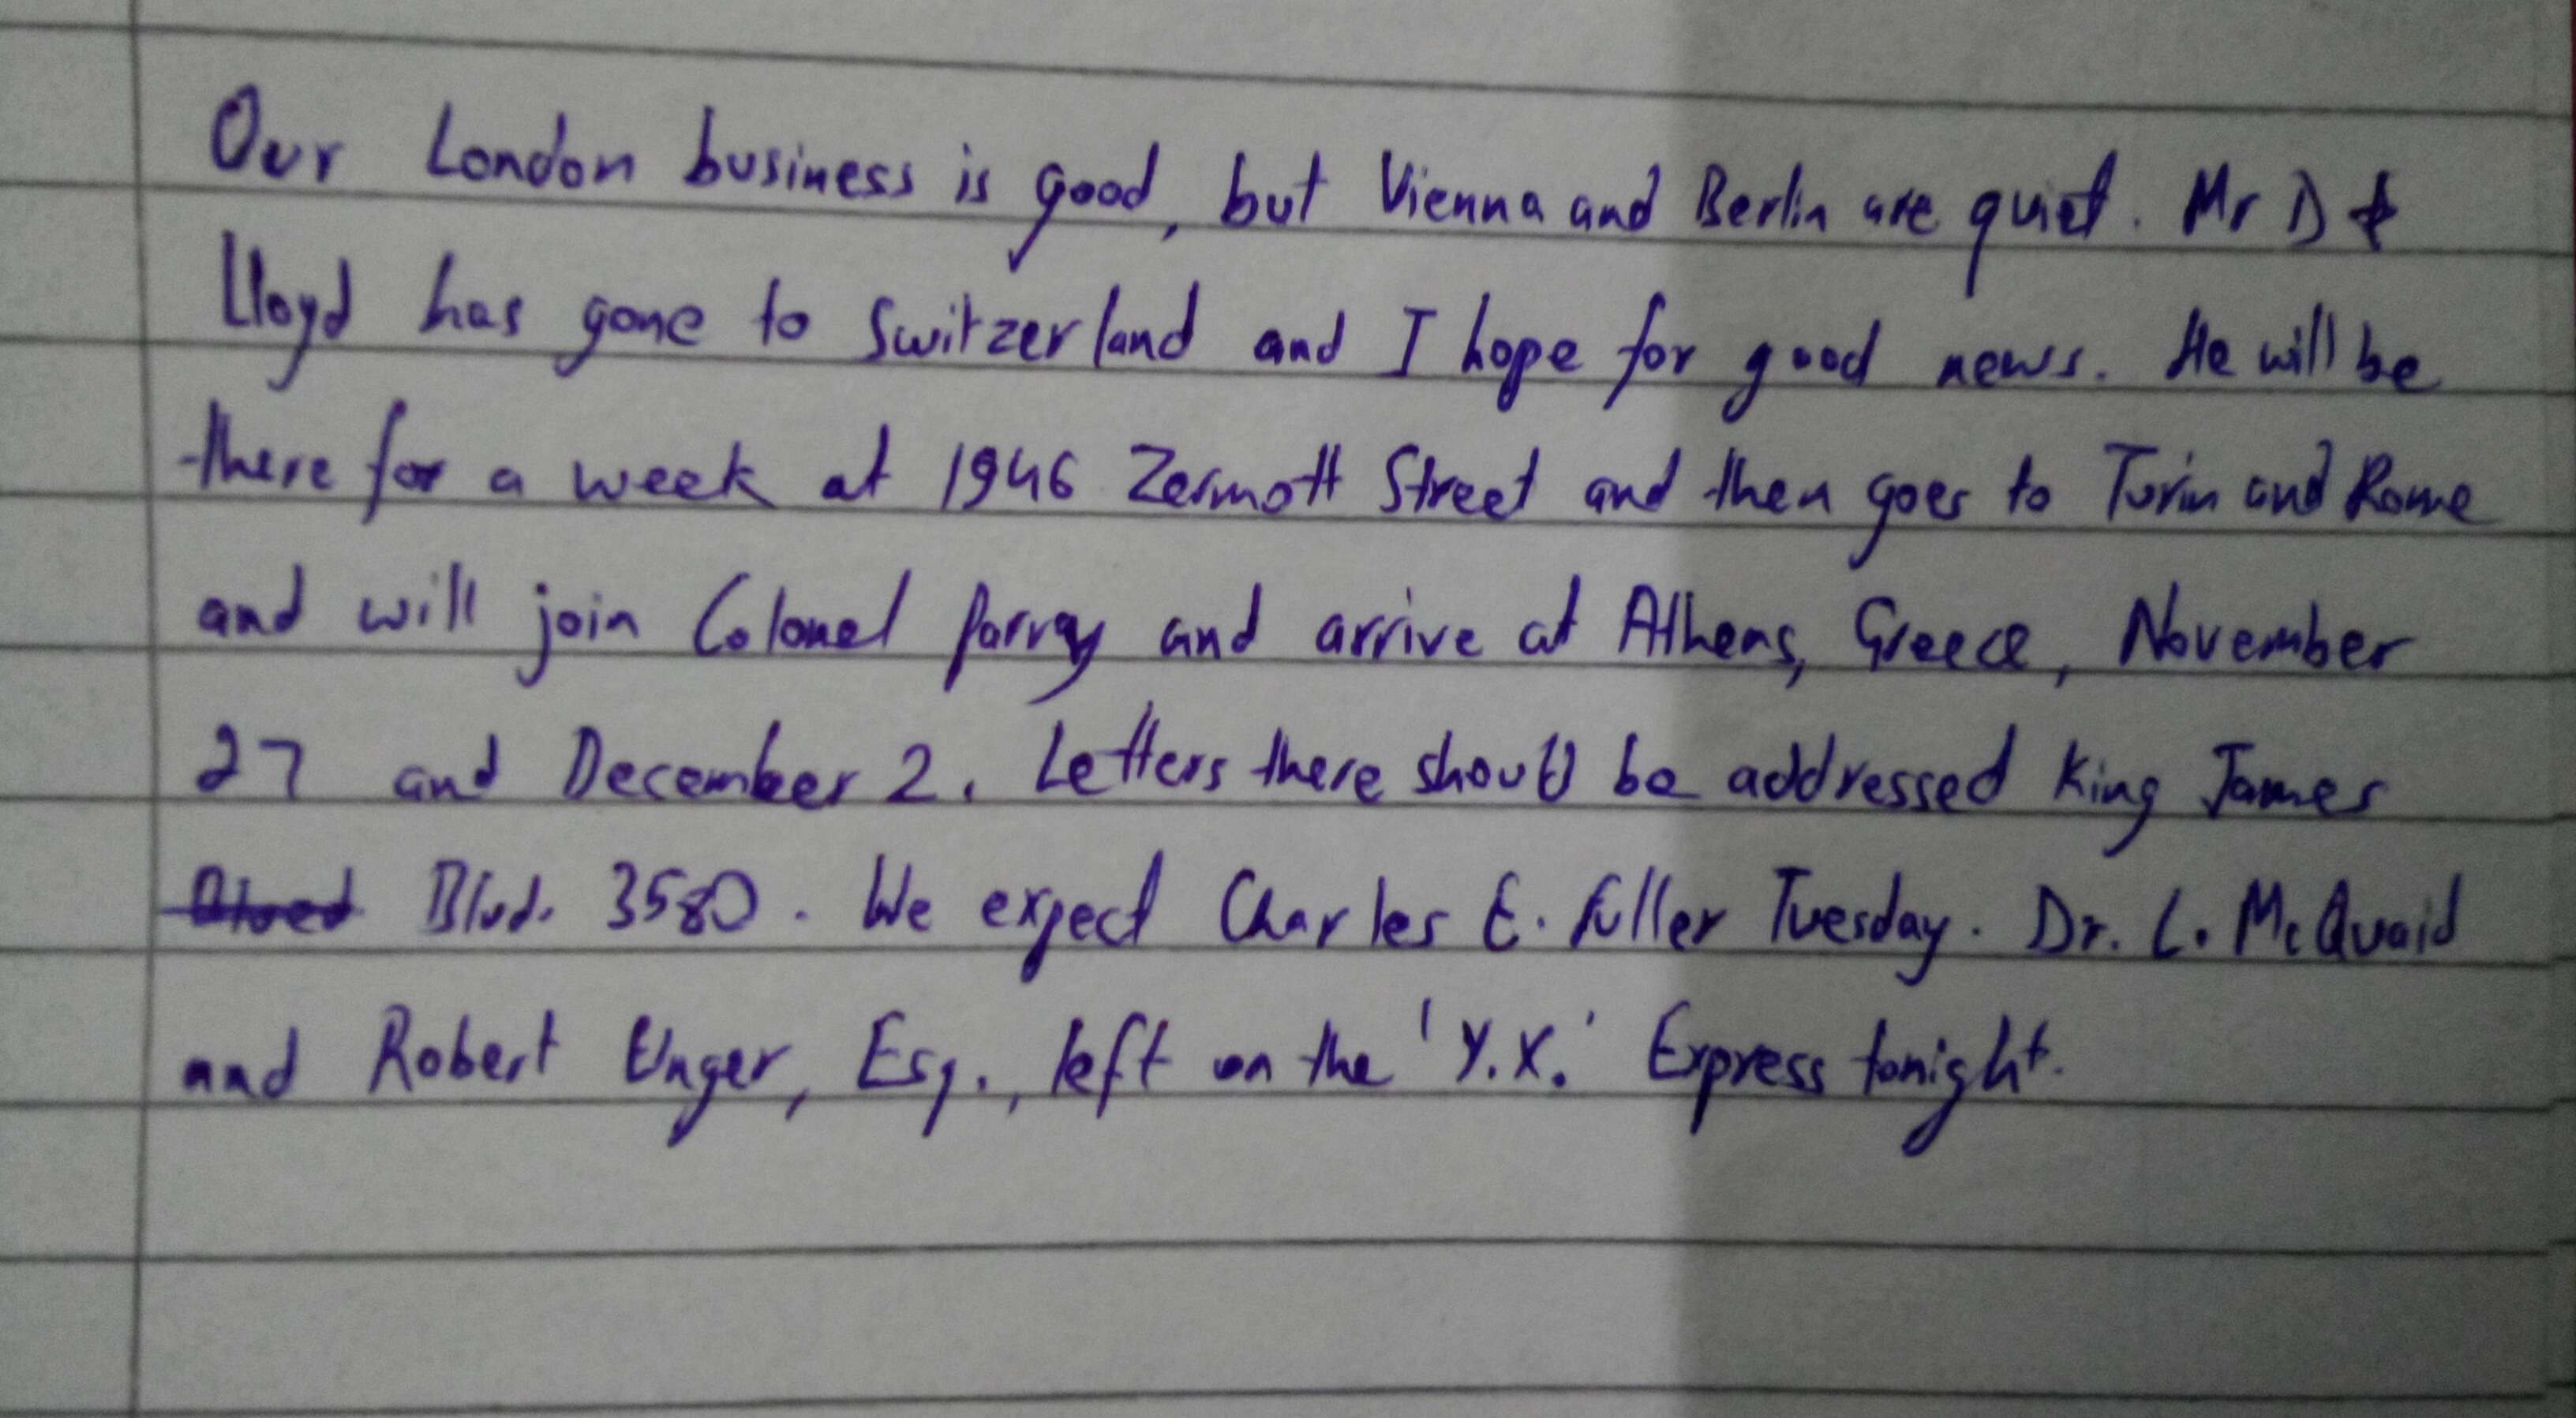 Our London business is good, but Vienna and Berlin are quiet. Mr D
Lloyd has gone to Switzerland and I hope for good news. He will be
there for a week at 1946 Zermott Street and then goes to Turin and Rome
and will join Colonel Parry and arrive at Athens, Greece, November
27 and December 2. Letters there should be addressed King James
Blvd. 3580. We expect Charles E. Fuller Tuesday. Dr. L. McQuaid
and Robert Unger, Esq., left on the 'Y.X.' Express tonight.